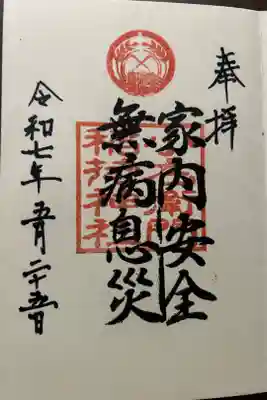 奉拝
家内安全
無病息災
令和七年五月二十五日